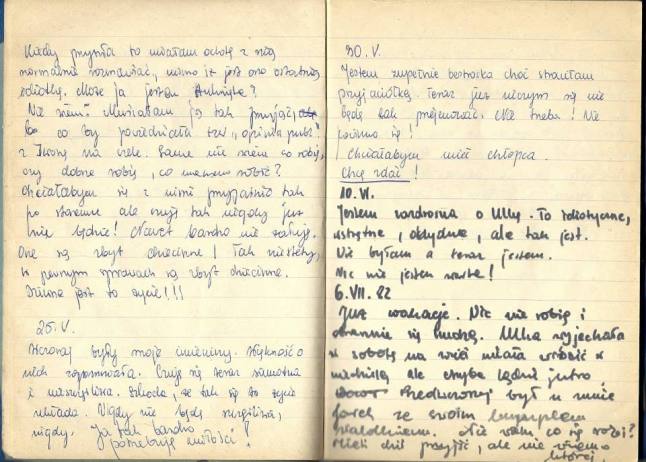 Kiedy przyszła to miałam ochotę z nią
normalnie rozmawiać, mimo iż jest ona ostatnią
idiotką. Może ja jestem
Nie wiem! Musiałam ją tak przyjąć
bo co by powiedziała tzw „opinia publ."
z Iwoną na czele. Same nie wiem co robię,
czy dobrze robię, co innego robić?
Chciałabym się z nimi przyjaźnić tak
po staremu ale czuję tak nigdy już
nie będzie! Nawet bardzo nie żałuję.
One są zbyt dziecinne! Tak niestety,
w pewnych sprawach są zbyt dziecinne.
Dziwne jest to życie!!!
25.V.
Wczoraj były moje imieniny. Większość o
nich zapomniała. Czuję się teraz samotna
i nieszczęśliwa. Szkoda, że tak się to życie
układa. Nigdy nie będę szczęśliwa,
nigdy. Ja tak bardzo
potrzebuję miłości!
30.V.
Jestem zupełnie beztroska choć straciłam
przyjaciółkę. Teraz już niczym się nie
będę tak przejmować. Nie trzeba! Nie
powinno się!
Chciałabym mieć chłopca.
Chcę zdać!
10.VI.
Jestem zazdrosna o Ulkę. To idiotyczne,
wstrętne, obłudne, ale tak jest.
Nie byłam a teraz jestem.
Nic nie jestem warta!
6.VII.82
Już wakacje. Nic nie robię i
strasznie się nudzę. Ulka wyjechała
w sobotę na wieś miała wrócić w
niedzielę ale chyba będzie jutro.
Przedwczoraj był u mnie
Jacek ze swoim kumplem
Waldkiem. Nie wiem co się robi?
Mieli dziś przyjść, ale nie wiemo
której.